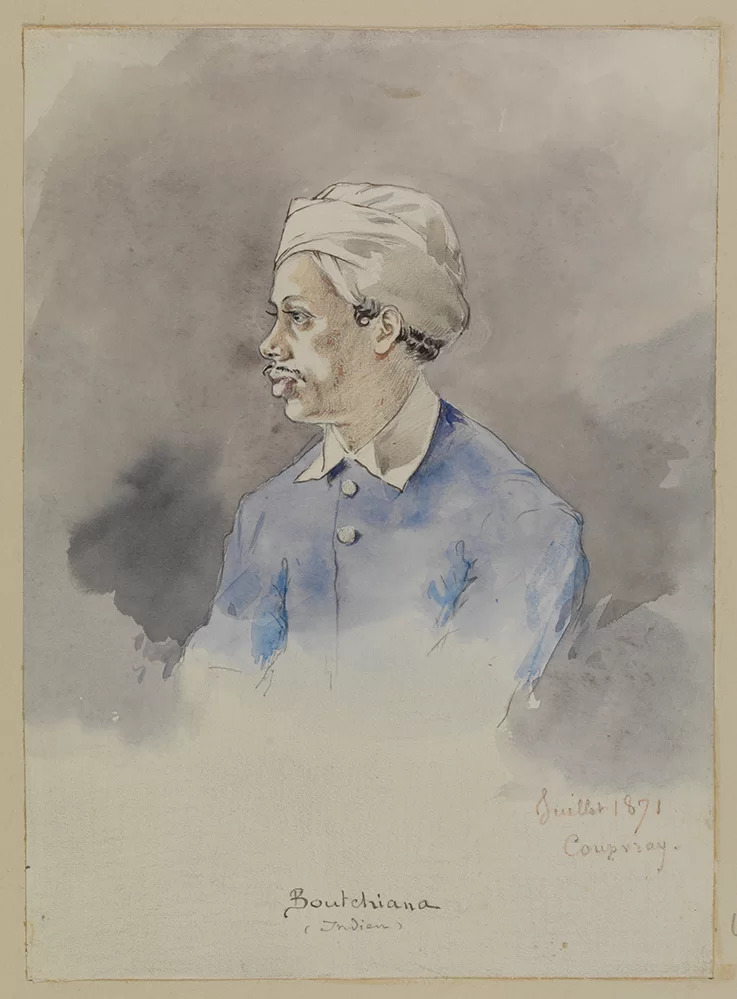 Juillet 1871
Coupvray.
Boutchiana
(Indien)